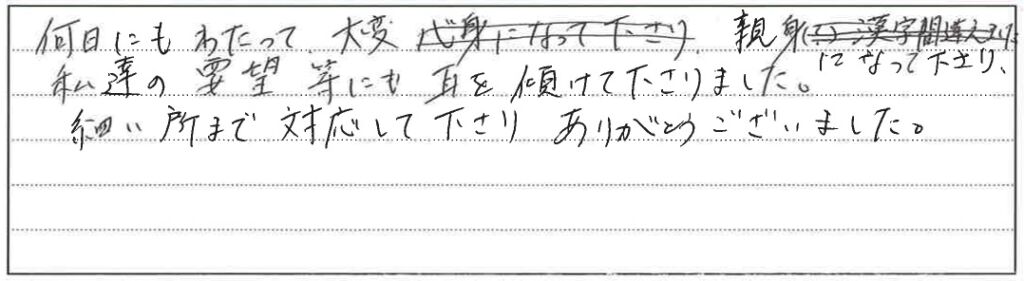 何日にもわたって、大変 心身になって下さり、親身(で)漢字間違えました
になって下さり、
私達の要望等にも耳を傾けて下さりました。
細い所まで対応して下さりありがとうございました。